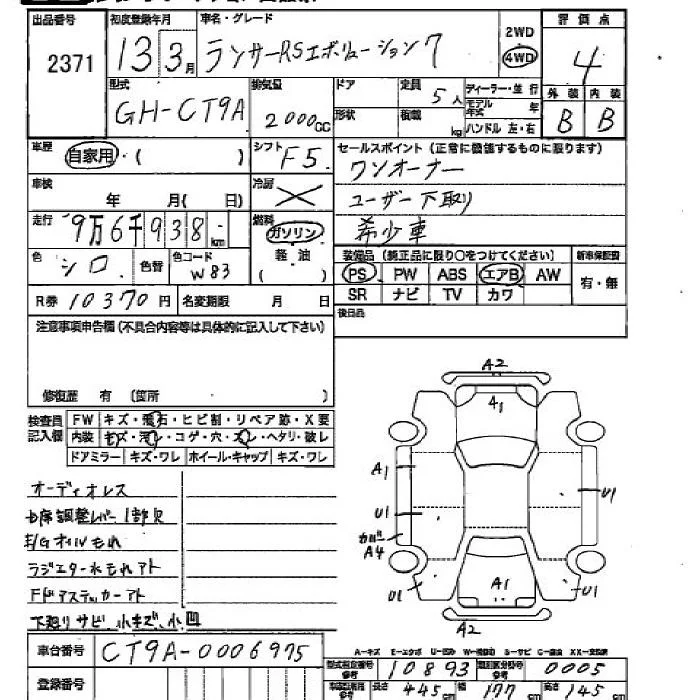 出品番号 初度登録年月 車名・グレード 2WD 評価点
2371 13 3月 ランサーRSエボリューション7 4WD 4
型式 排気量 ドア 定員 ディーラー・並行 外装 内装
GH-CT9A 2000cc 5人 モデル年式 年 B B
形状 積載 kg ハンドル 左・右
車歴 自家用・( ) シフト F5 セールスポイント(正常に機能するものに限ります)
ワンオーナー
車検 年 月( 日) 冷房 ×
ユーザー下取り
走行 9万6千938km 燃料 ガソリン 希少車
色 シロ 色替 色コード W83 軽油 ( )
装備品(純正品に限り○をつけてください) 新車保証書
PS PW ABS エアB AW 有・無
R券 10370円 名変期限 月 日 SR ナビ TV カワ
注意事項申告欄(不具合内容等は具体的に記入して下さい) 後日品
修復歴 有 (箇所 )
検査員記入欄 FW キズ・飛石・ヒビ割・リペア跡・X要
内装 キズ・汚レ・コゲ・穴・スレ・ヘタリ・破レ
ドアミラー キズ・ワレ ホイール・キャップ キズ・ワレ
A2
A1
A1 U1
U1
カバー
A4
U1 A1 U1
A2
オーディオレス
D席調整レバー1部欠
E/Gオイルもれ
ラジエター水もれアト
Fドアステッカーアト
下廻りサビ、小キズ、小凹
車台番号 CT9A-0006975
A-キズ E-エクボ U-凹み W-補修跡 S-サビ C-腐食 XX-交換済
型式指定番号 参考 10893 類別区分番号 参考 0005
登録番号 長さ 445cm 幅 177cm 高さ 145cm